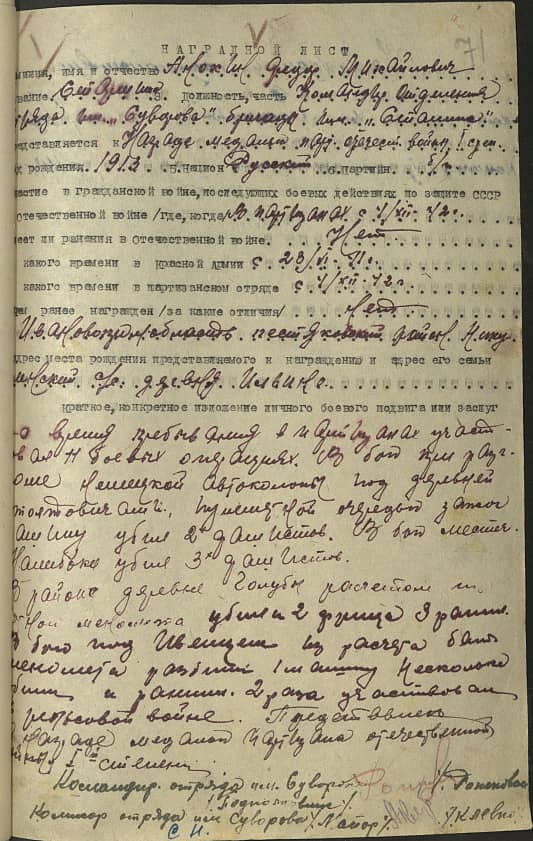 71
НАГРАДНОЙ ЛИСТ
милия, имя и отчество Анохин Федор Михайлович
звание Старшина 3. должность, часть Командир отделения
отряда им. "Суворова" бригады им. "Сталина".
редставляется к Награде медалью парт. отечест. войны I степ.
од рождения. 1913 5. Национ Русский 6. партийн. б/п
частие в гражданской войне, последующих боевых действиях по защите СССР
отечественной войне /где, когда/ В партизанах с 1/XII 42г.
меет ли ранения в Отечественной войне. Нет
какого времени в Красной Армии с 23/VI 41г.
какого времени в партизанском отряде с 1/XII 42г.
ем ранее награжден /за какие отличия/ Нет
Ивановская область, пестяковский район Нику-
дрес места рождения представляемого к награждению и адрес его семьи
линский деревня Ильино
Краткое, конкретное изложение личного боевого подвига или заслуг
во время пребывания в партизанах участ-
вовал боевых операциях. В бою при разг-
роме Немецкой автоколонны под деревней
пулеметной очередью зажог
машину убил 2х фашистов. В бою местеч.
Налибоки убил 3х фашистов.
В районе деревни Голубы расчетом
миномета убили 2 фрица 3 ранил.
В бою под Ивенцем из расчета бат.
миномета разбили 1 машину несколько
убили и ранили. 2 раза участвовал
в рельсовой войне. Представлен
к Награде медалью партизана отечественной
войны I степени
Командир отряда им. Суворова
/Подполковник/
Комиссар отряда им Суворова /Майор/ /Клевко/